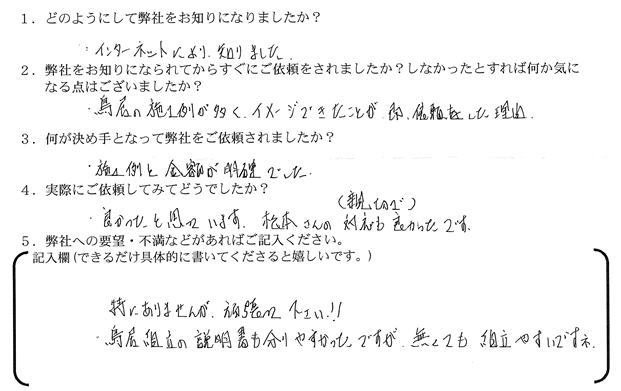 1．どのようにして弊社をお知りになりましたか？
・インターネットにより、知りました
2．弊社をお知りになられてからすぐにご依頼をされましたか？しなかったとすれば何か気に
なる点はございましたか？
・鳥居の施工例が多く、イメージできたことが、即、依頼をした理由。
3．何が決め手となって弊社をご依頼されましたか？
・施工例と金額が明確でした。
4．実際にご依頼してみてどうでしたか？
（親切で）
・良かったと思っています。松本さんの対応も良かったです。
5．弊社への要望・不満などがあればご記入ください。
記入欄(できるだけ具体的に書いてくださると嬉しいです。)
特にありませんが、頑張って下さい!!
・鳥居組立の説明書も分りやすかったですが、無くても組立やすいですネ.